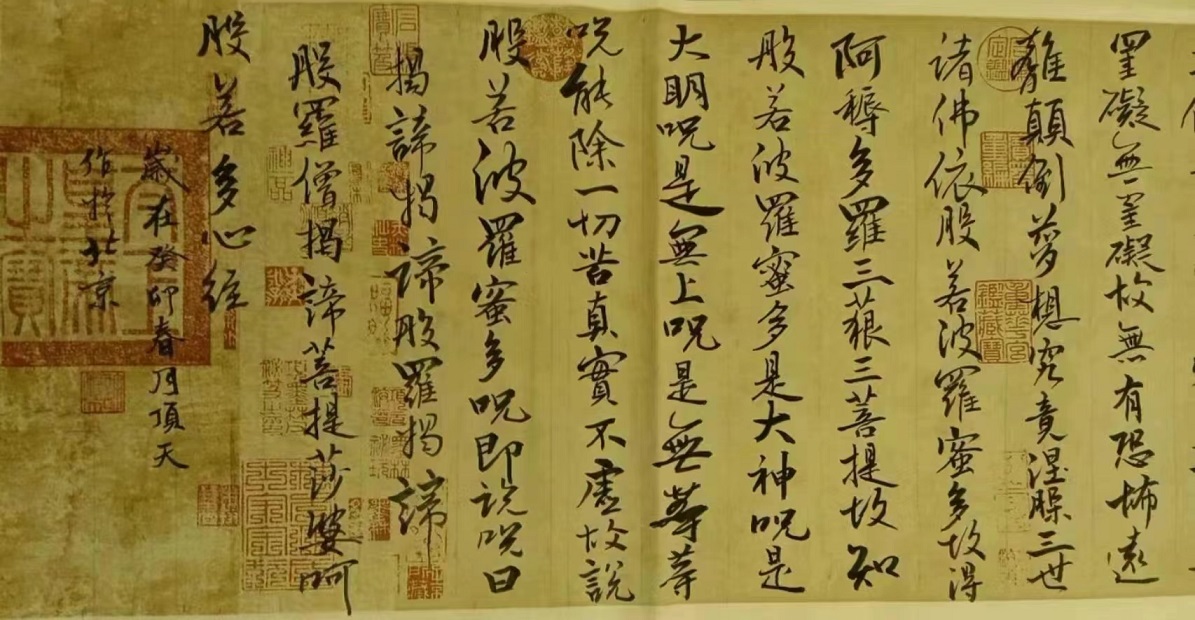 罣礙無罣礙故無有恐怖遠
離顛倒夢想究竟涅槃三世
諸佛依般若波羅蜜多故得
阿耨多羅三藐三菩提故知
般若波羅蜜多是大神呪是
大明呪是無上呪是無等等
呪能除一切苦真實不虛故說
般若波羅蜜多呪即說呪曰
揭諦揭諦般羅揭諦
般羅僧揭諦菩提莎婆呵
般若多心経
歲在癸卯春月頂天
作於北京